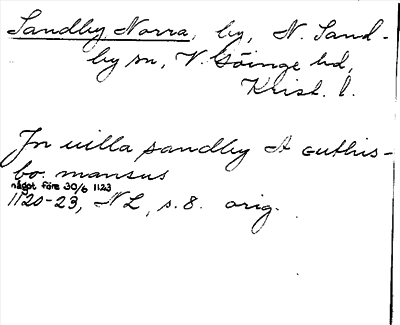 Sandby Norra, by, N. Sand-
by sn, V. Göinge hd,
Krist. l.
In uilla sandby A cuthis-
bo. mansus
något före 30/6 1123
1120-23, N L, s. 8. orig.